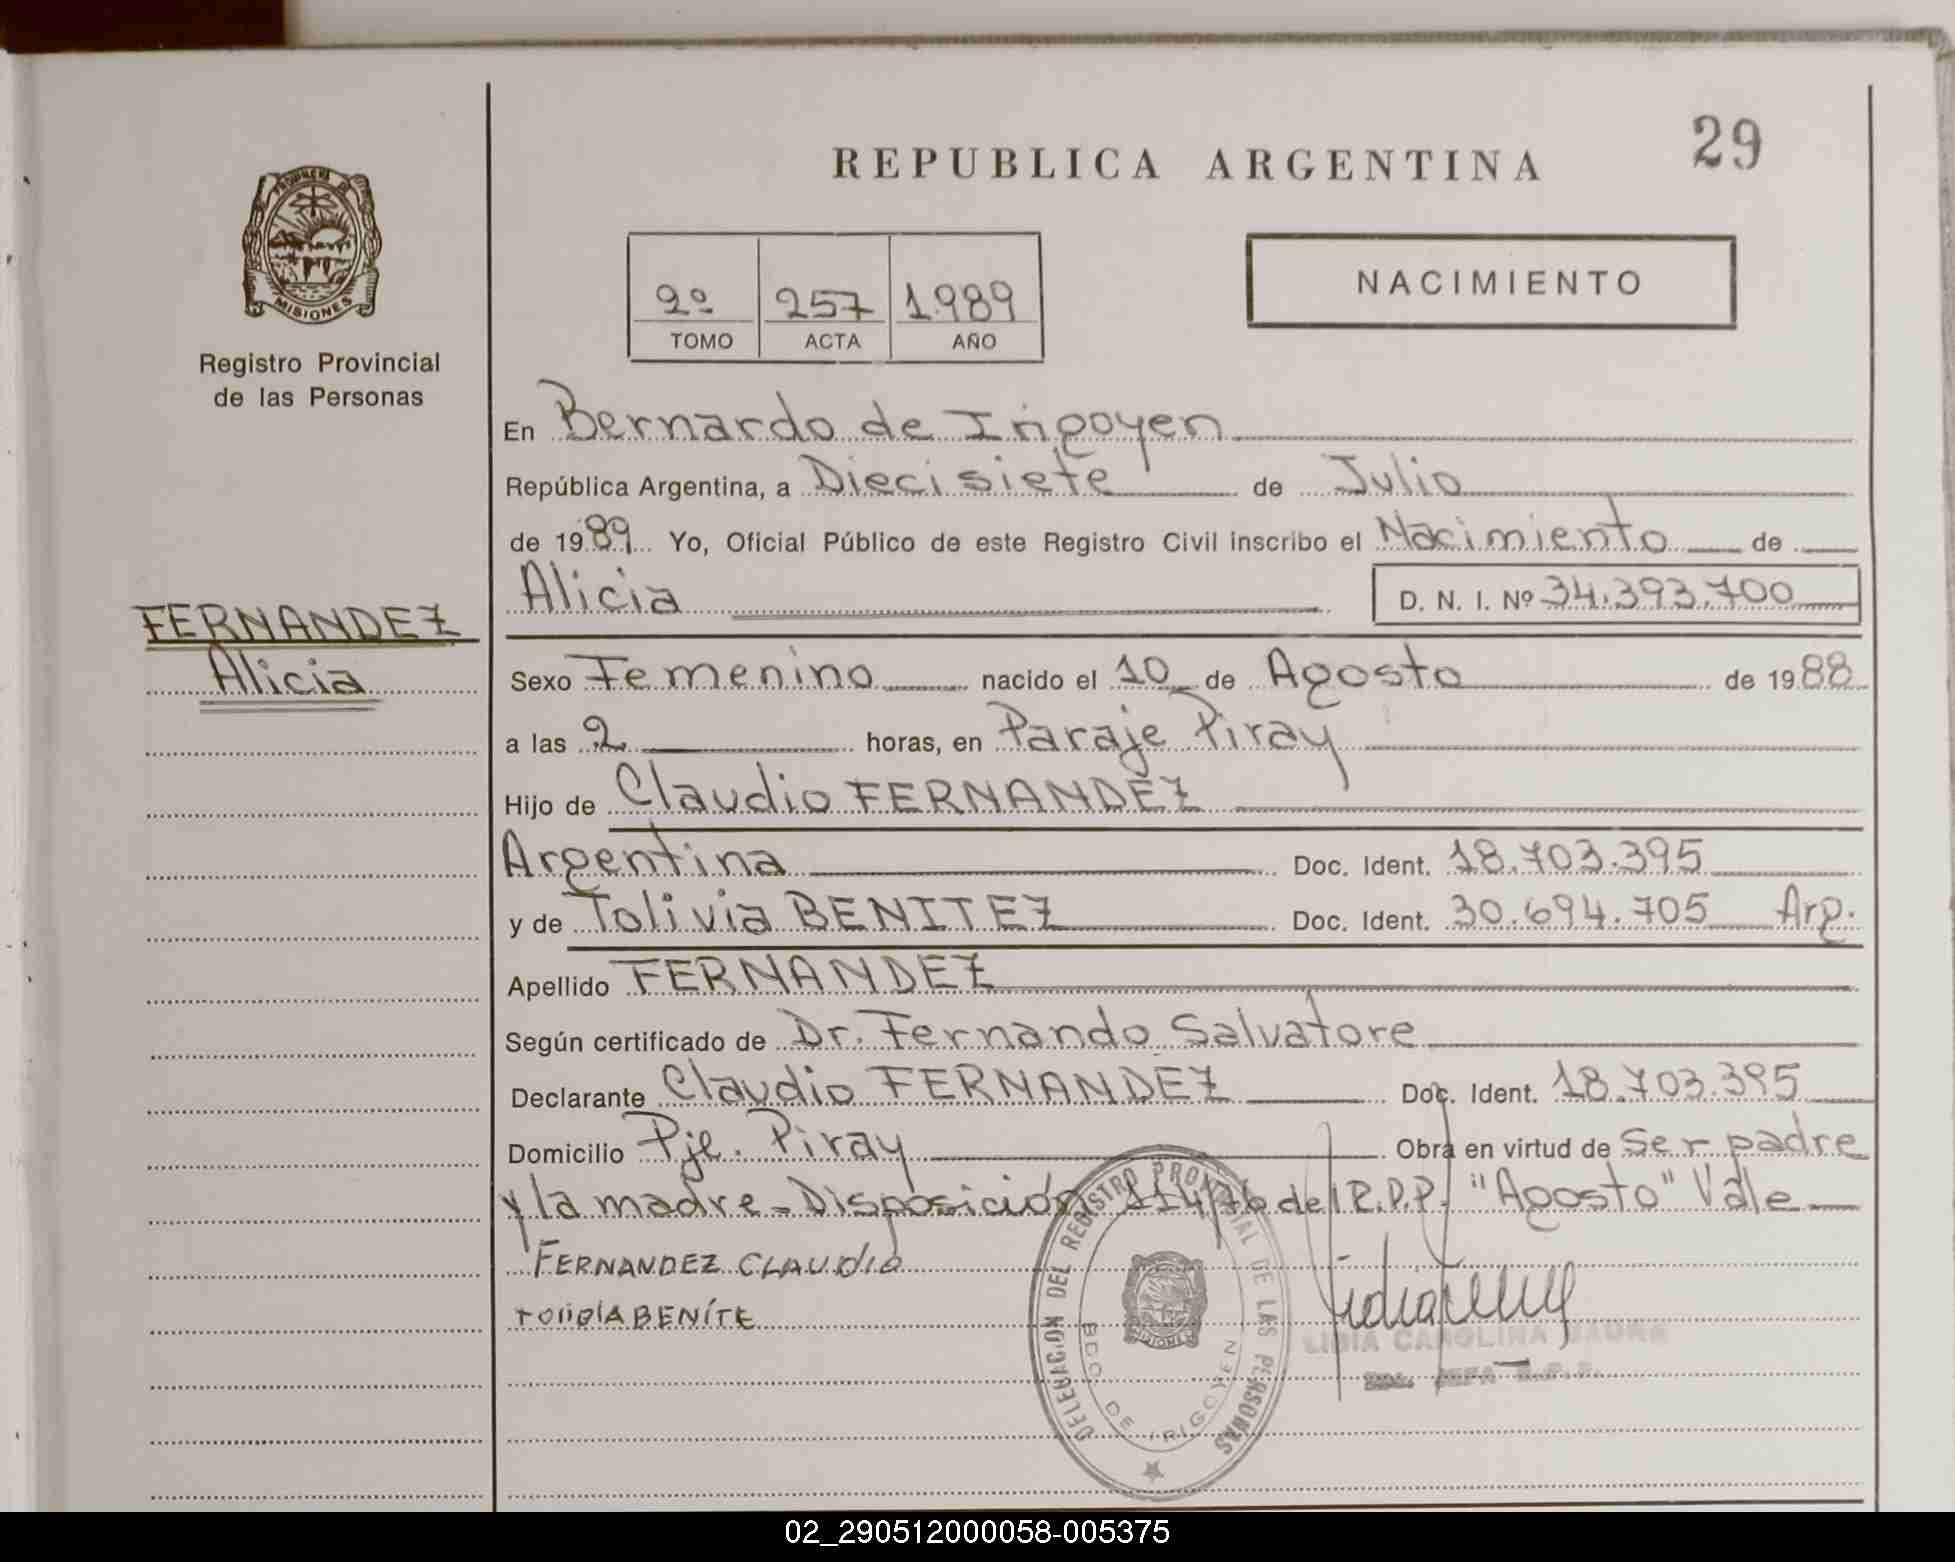 REPUBLICA ARGENTINA
29
PROVINCIA DE
MISIONES
Registro Provincial
de las Personas
2º 257 1.989
TOMO ACTA AÑO
NACIMIENTO
En Bernardo de Irigoyen
República Argentina, a Diecisiete de Julio
de 1989 Yo, Oficial Público de este Registro Civil inscribo el Nacimiento de
Alicia D. N. I. Nº 34.393.700
FERNANDEZ
Alicia
Sexo Femenino nacido el 10 de Agosto de 1988
a las 2 horas, en Paraje Piray
Hijo de Claudio FERNANDEZ
Argentina Doc. Ident. 18.703.395
y de Tolivia BENITEZ Doc. Ident. 30.694.705 Arg.
Apellido FERNANDEZ
Según certificado de Dr. Fernando Salvatore
Declarante Claudio FERNANDEZ Doc. Ident. 18.703.395
Domicilio Pje. Piray Obra en virtud de Ser padre
y la madre - Disposición 114/76 del R.P.P. "Agosto" Vale
FERNANDEZ CLAUDIO
BENÍTE
DELEGACION DEL REGISTRO PROVINCIAL DE LAS PERSONAS
BDO DE IRIGOYEN
MISIONES
LIDIA CAROLINA
JEFA R.P.P.
02_290512000058-005375